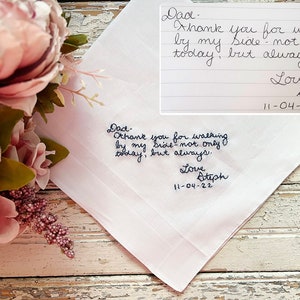 Dad-
Thank you for walking
by my side-not only
today, but always
Lo
11-04
Dad-
Thank you for walking
by my side-not only
today, but always.
Love
Steph
11-04-22